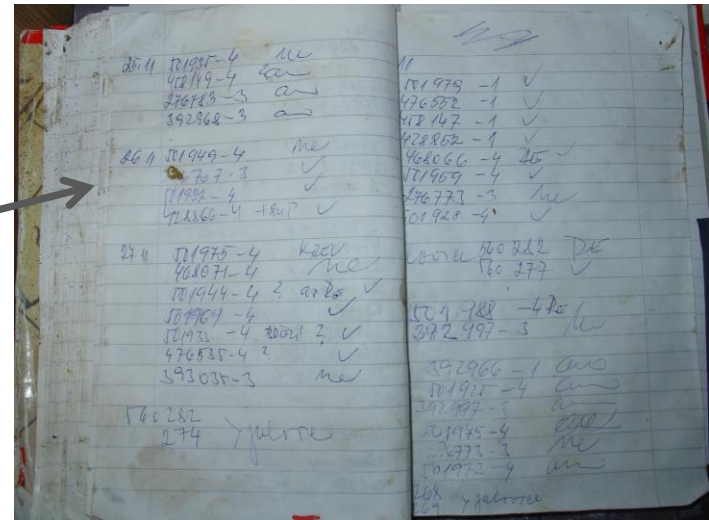 25.11 501935-4 Ne
458149-4 ano
276783-3 ano
392968-3 ano
26 11 501949-4 Ne
767-3 ✓
501932-4 ✓
428866-4 ✓
27 11 501975-4 KREV
468071-4 Ne
501944-4 ? ✓
501964-4 ✓
501933-4 ? ✓
476535-4 ? ✓
393035-3 Ne
560282
274
11
501979-1 ✓
476552-1 ✓
458147-1 ✓
428852-1 ✓
468066-4 ✓
501959-4 ✓
276773-3 Ne
501928-4 ✓
560282 DE
560277 ✓
501988-4
392997-3 Ne
392966-1 ano
501925-4 ano
392997-3 ano
501975-4
276773-3 Ne
501973-4 ano
268
269 jalovice